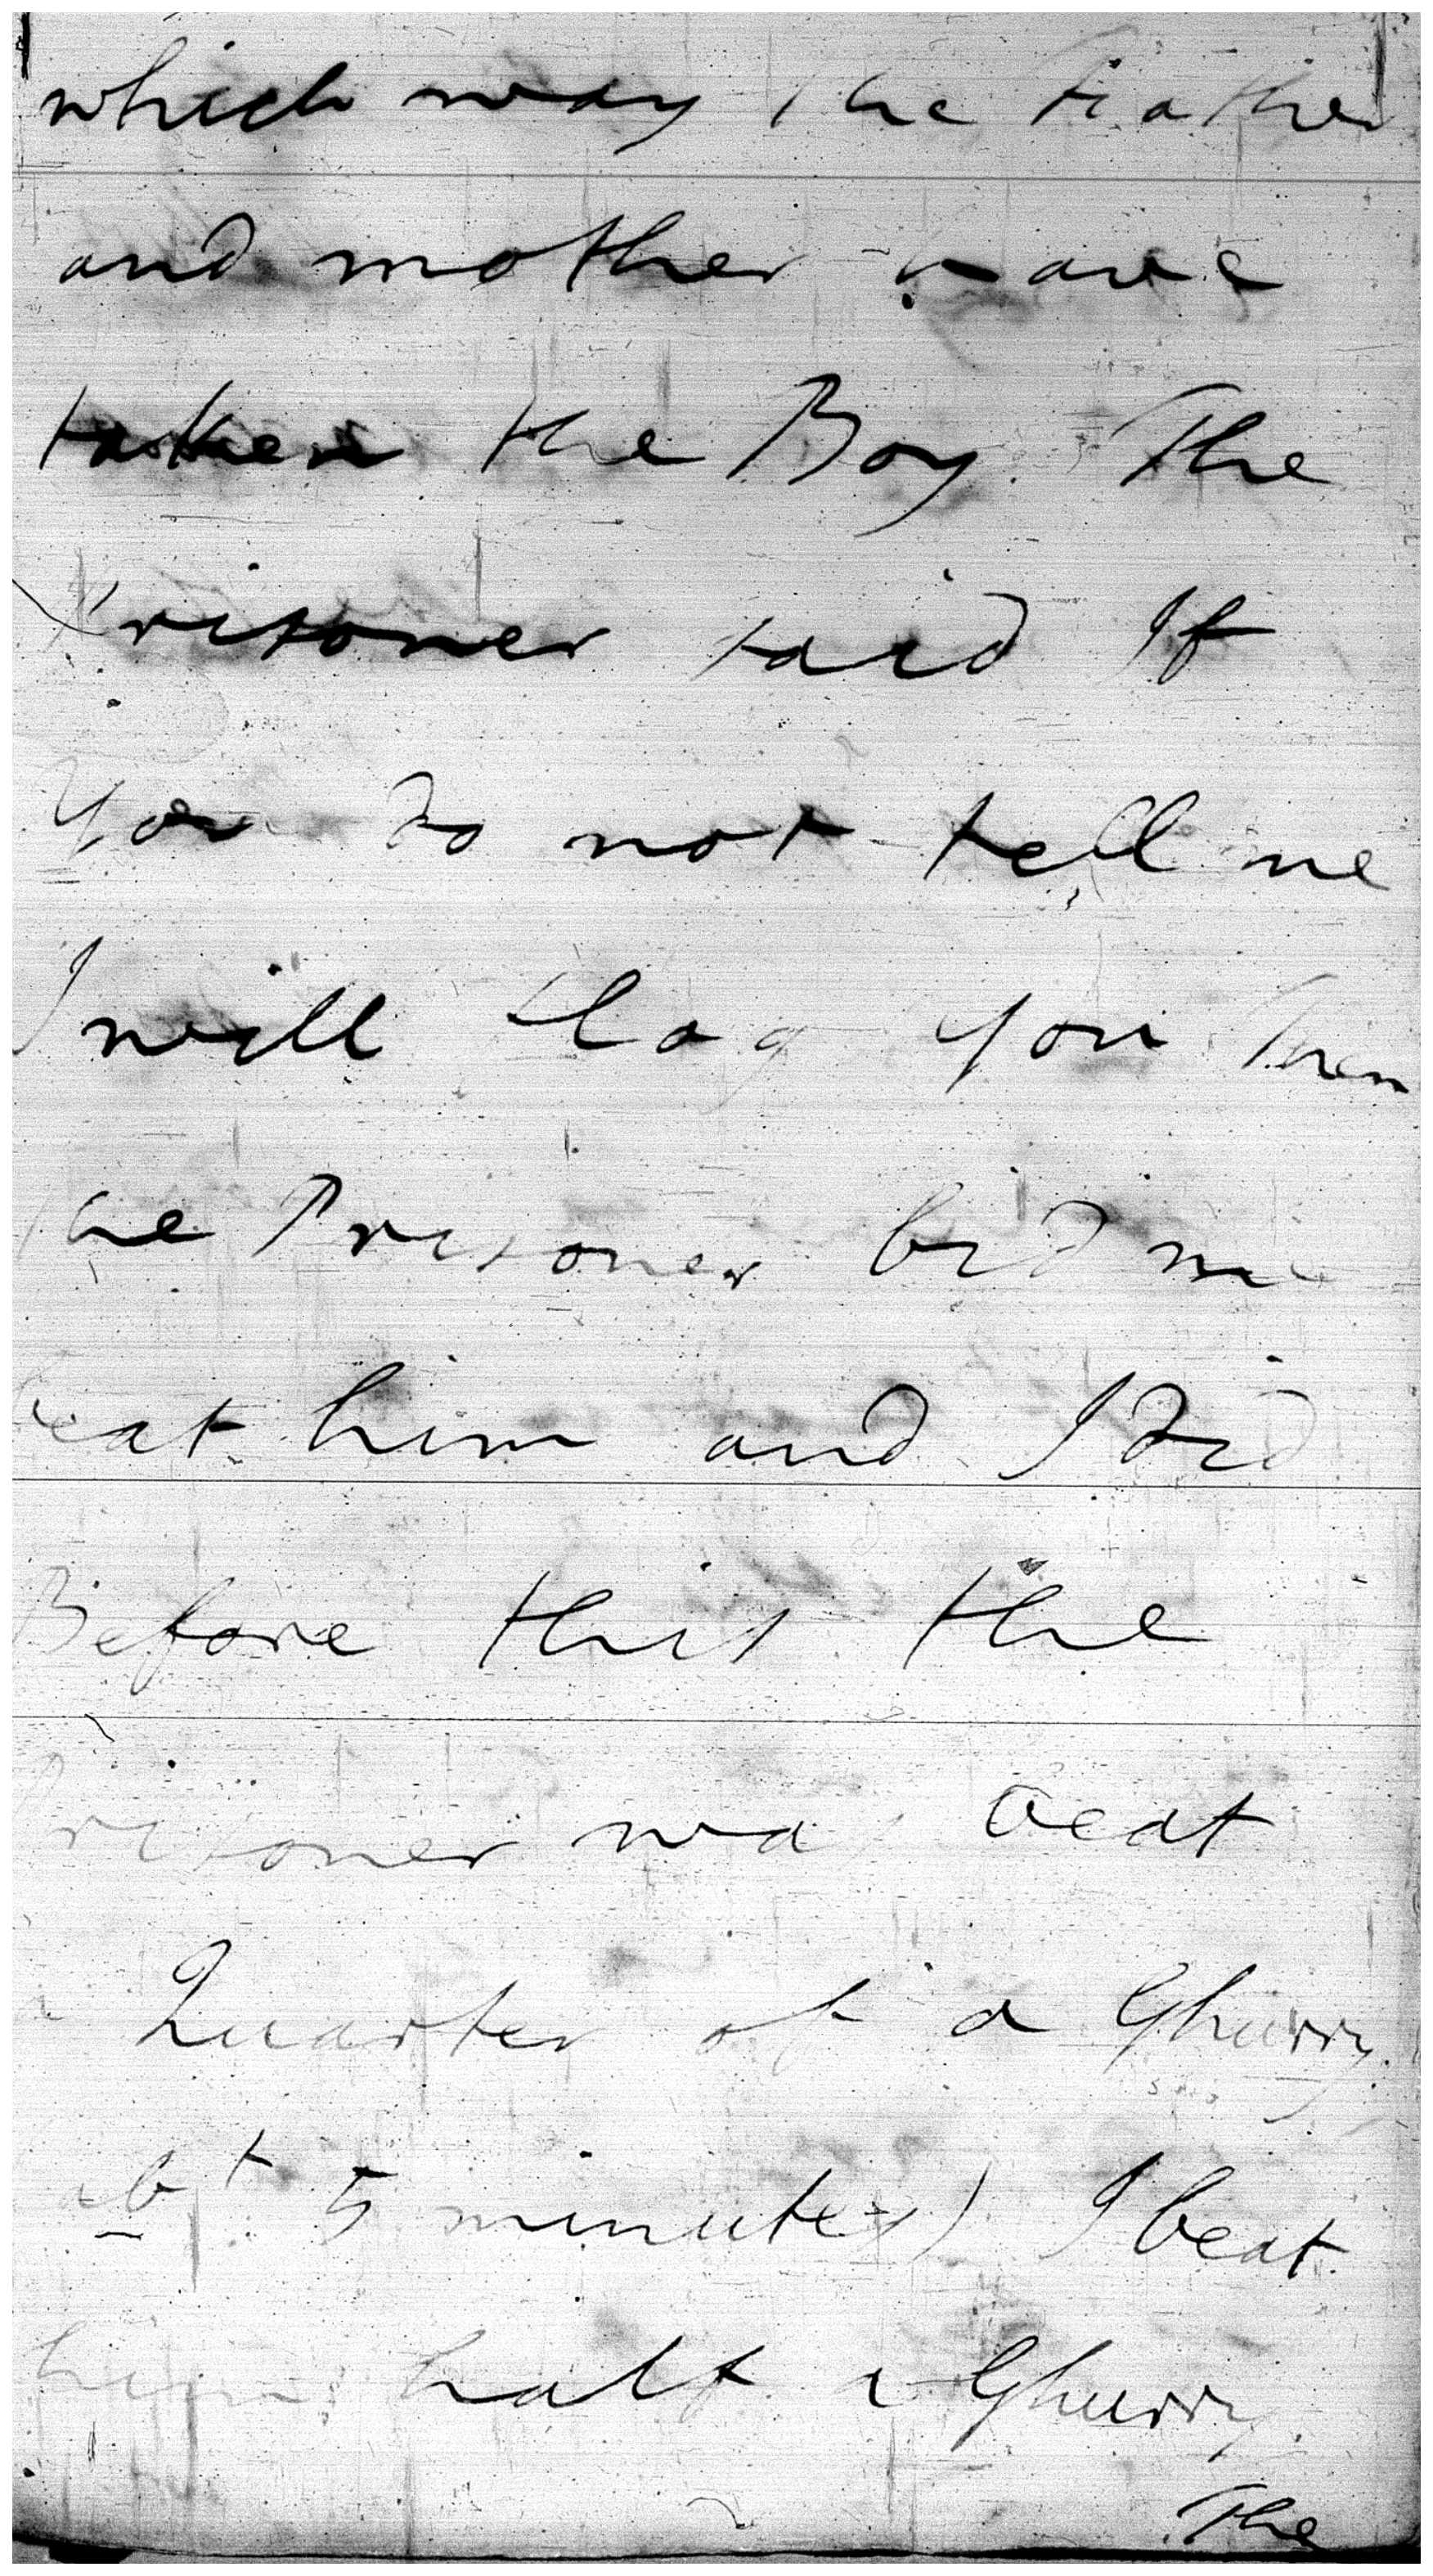 which way the Father
and mother have
taken the Boy. The
Prisoner said If
You do not tell me
I will flog you Then
the Prisoner bid me
beat him and I did
Before this the
Prisoner was beat
a Quarter of a Ghurry
abt 5 minutes) I beat
him half a Ghurry.
The